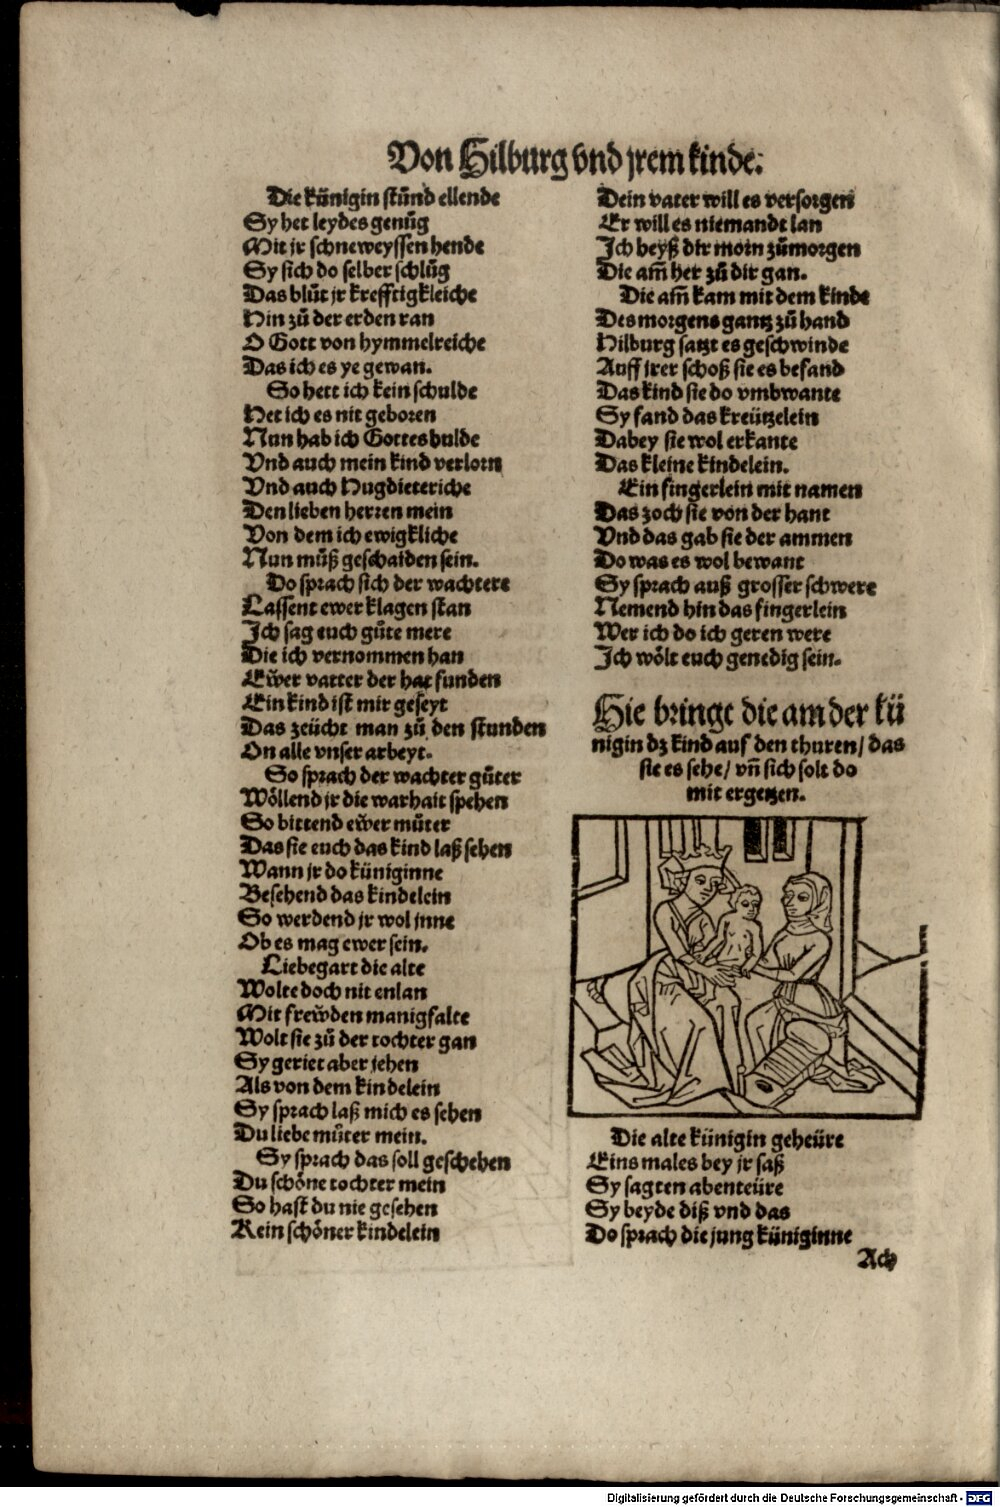 Von Hilburg vnd jrem kinde.
Die künigin stůnd ellende
Sy het leydes genůg
Mit jr schneweyssen hende
Sy sich do selber schlůg
Das blůt jr krefftigkleiche
Hin zů der erden ran
O Gott von hymmelreiche
Das ich es ye gewan.
So hett ich kein schulde
Het ich es nit geboren
Nun hab ich Gottes hulde
Vnd auch mein kind verlorn
Vnd auch Hugdieteriche
Den lieben herren mein
Von dem ich ewigkliche
Nun můß geschaiden sein.
Do sprach sich der wachtere
Lassent ewer klagen stan
Ich sag euch gůte mere
Die ich vernommen han
Ewer vatter der hat funden
Ein kind ist mir geseyt
Das zeücht man zů den stunden
On alle vnser arbeyt.
So sprach der wachter gůter
Wöllend jr die warhait spehen
So bittend ewer můter
Das sie euch das kind laß sehen
Wann jr do küniginne
Besehend das kindelein
So werdend jr wol jnne
Ob es mag ewer sein.
Liebegart die alte
Wolte doch nit enlan
Mit frewden manigfalte
Wolt sie zů der tochter gan
Sy geriet aber jehen
Als von dem kindelein
Sy sprach laß mich es sehen
Du liebe můter mein.
Sy sprach das soll geschehen
Du schöne tochter mein
So hast du nie gesehen
Kein schöner kindelein
Dein vater will es versorgen
Er will es niemandt lan
Ich heyß dir moin zůmorgen
Die am̄ her zů dir gan.
Die am̄ kam mit dem kinde
Des morgens gantz zů hand
Hilburg satzt es geschwinde
Auff jrer schoß sie es befand
Das kind sie do vmbwante
Sy fand das kreützelein
Dabey sie wol erkante
Das kleine kindelein.
Ein fingerlein mit namen
Das zoch sie von der hant
Vnd das gab sie der ammen
Do was es wol bewant
Sy sprach auß grosser schwere
Nemend hin das fingerlein
Wer ich do ich geren were
Ich wölt euch genedig sein.
Hie bringt die am der kü
nigin dz kind auf den thuren/ das
sie es sehe/ vn̄ sich solt do
mit ergetzen.
Die alte künigin geheüre
Eins males bey jr saß
Sy sagten abenteüre
Sy beyde diß vnd das
Do sprach die jung küniginne
Ach
Digitalisierung gefördert durch die Deutsche Forschungsgemeinschaft - DFG